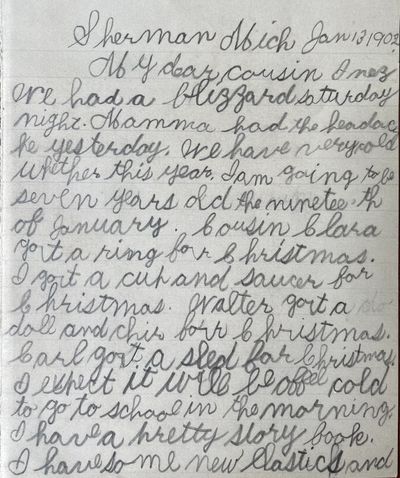 Sherman Mich Jan 13 1902
My dear cousin Inez
We had a blizzard saturday
night. Mamma had the headac
he yesterday. We have very cold
whether this year, I am going to be
seven years old the ninetee th
of January. Cousin Clara
gort a ring forr Christmas.
I gort a cup and saucer for
Christmas. Walter gort a do
doll and chir forr Christmas.
Carl gort a sled for Christmas.
I expect it will be offel cold
to go to school in the morning.
I have a pretty story book.
I have some new Elastics and